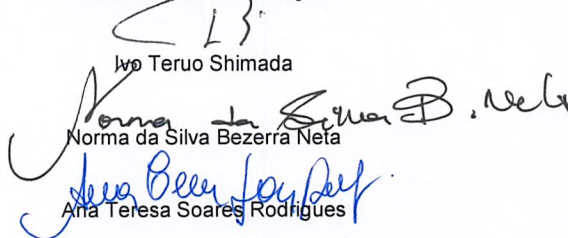 Ivo Teruo Shimada
Norma da Silva B. Neta
Norma da Silva Bezerra Neta
Ana Teresa Soares Rodrigues